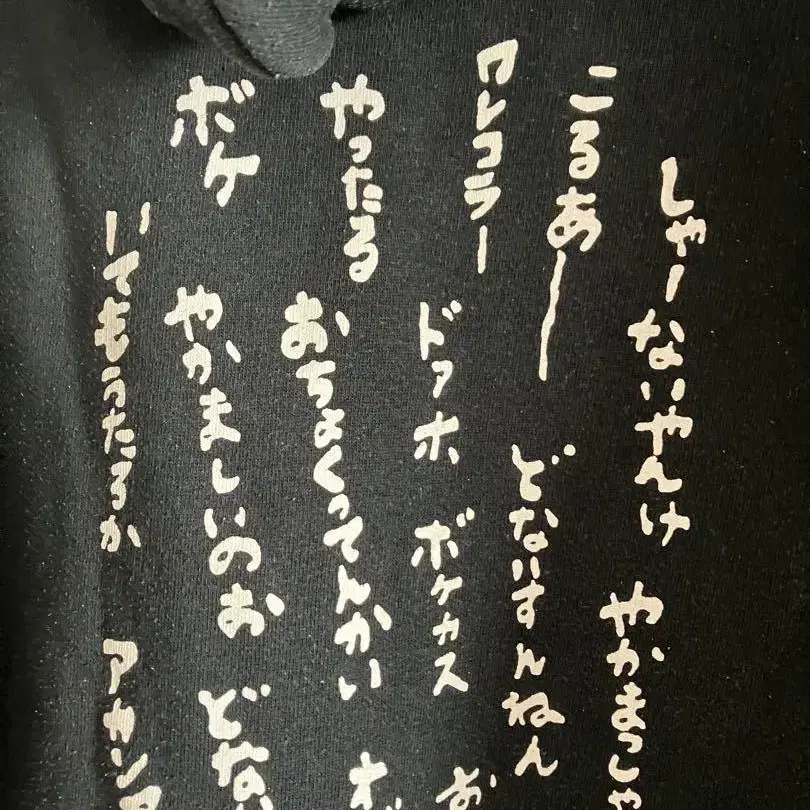 しゃーないやんけ　やかまっしゃ
こるあー　どないすんねん
ワレコラー　ドァホ　ボケカス　お
やったる　おちょくってんかい
ボケ　やかましいのお　どない
いてもうたろか　アカン